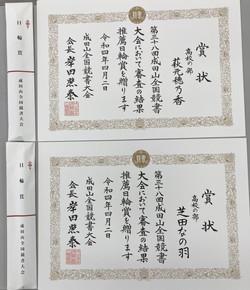 賞状
高校の部
荻元穂乃香
第三十八回成田山全国競書
大会において審査の結果
推薦日輪賞を贈ります
令和四年四月二日
成田山全国競書大会
会長
日輪賞
成田山全国競書大会
賞状
高校の部
芝田なの羽
第三十八回成田山全国競書
大会において審査の結果
推薦日輪賞を贈ります
令和四年四月二日
成田山全国競書大会
会長
日輪賞
成田山全国競書大会